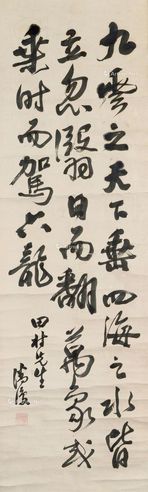 九雲之天下垂四海之水皆
立忽翳日而翻萬象或
乘时而駕六龍
田村先生